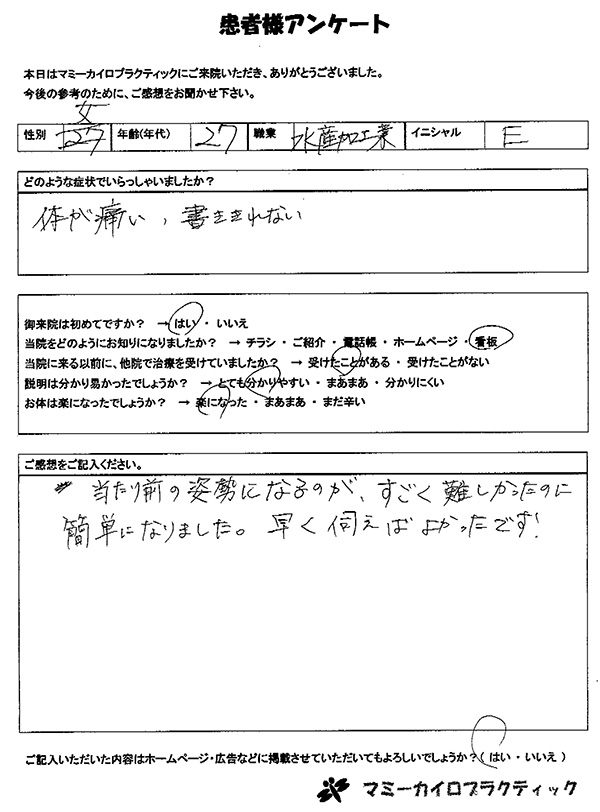 患者様アンケート
本日はマミーカイロプラクティックにご来院いただき、ありがとうございました。
今後の参考のために、ご感想をお聞かせ下さい。
女
性別 年齢(年代) 27 職業 水産加工業 イニシャル E
どのような症状でいらっしゃいましたか?
体が痛い, 書ききれない
御来院は初めてですか? → はい ・ いいえ
当院をどのようにお知りになりましたか? → チラシ ・ ご紹介 ・ 電話帳 ・ ホームページ ・ 看板
当院に来る以前に、他院で治療を受けていましたか? → 受けたことがある ・ 受けたことがない
説明は分かり易かったでしょうか? → とても分かりやすい ・ まあまあ ・ 分かりにくい
お体は楽になったでしょうか? → 楽になった ・ まあまあ ・ まだ辛い
ご感想をご記入ください。
当たり前の姿勢になるのが、すごく難しかったのに
簡単になりました。早く伺えばよかったです!
ご記入いただいた内容はホームページ・広告などに掲載させていただいてもよろしいでしょうか?( はい ・ いいえ )
マミーカイロプラクティック